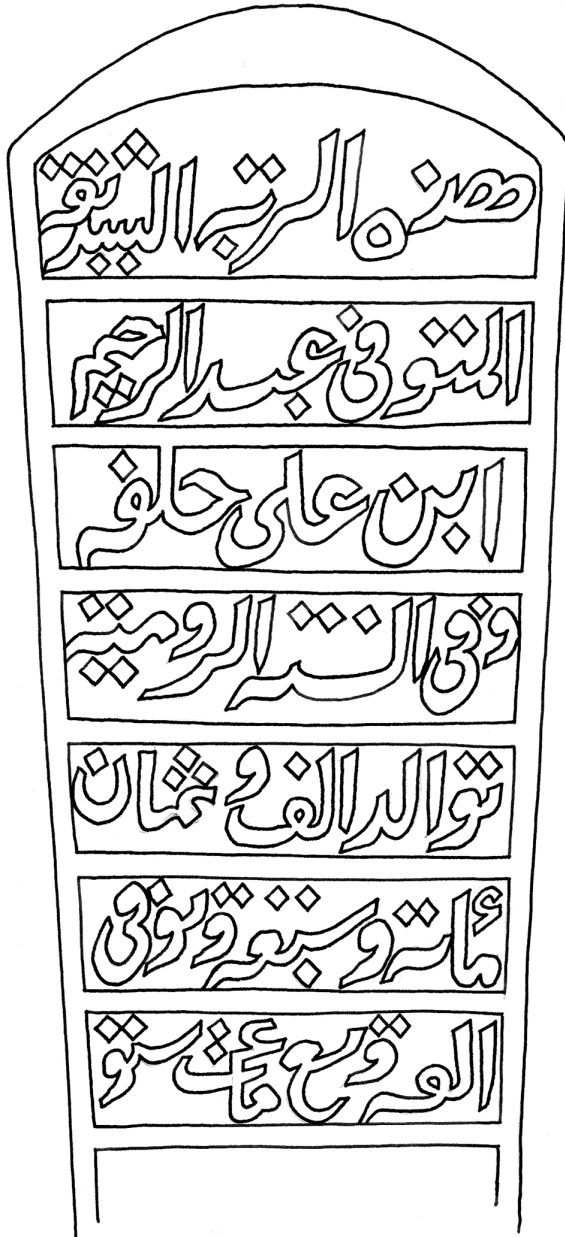 هذه التربة الشريفة
المتوفى عبد الرحيم
ابن على خلفه
وفى السنه الرومية
توالد الف و ثمان
مائة وسبعة وتوفى
الف وتسع مائة ستو